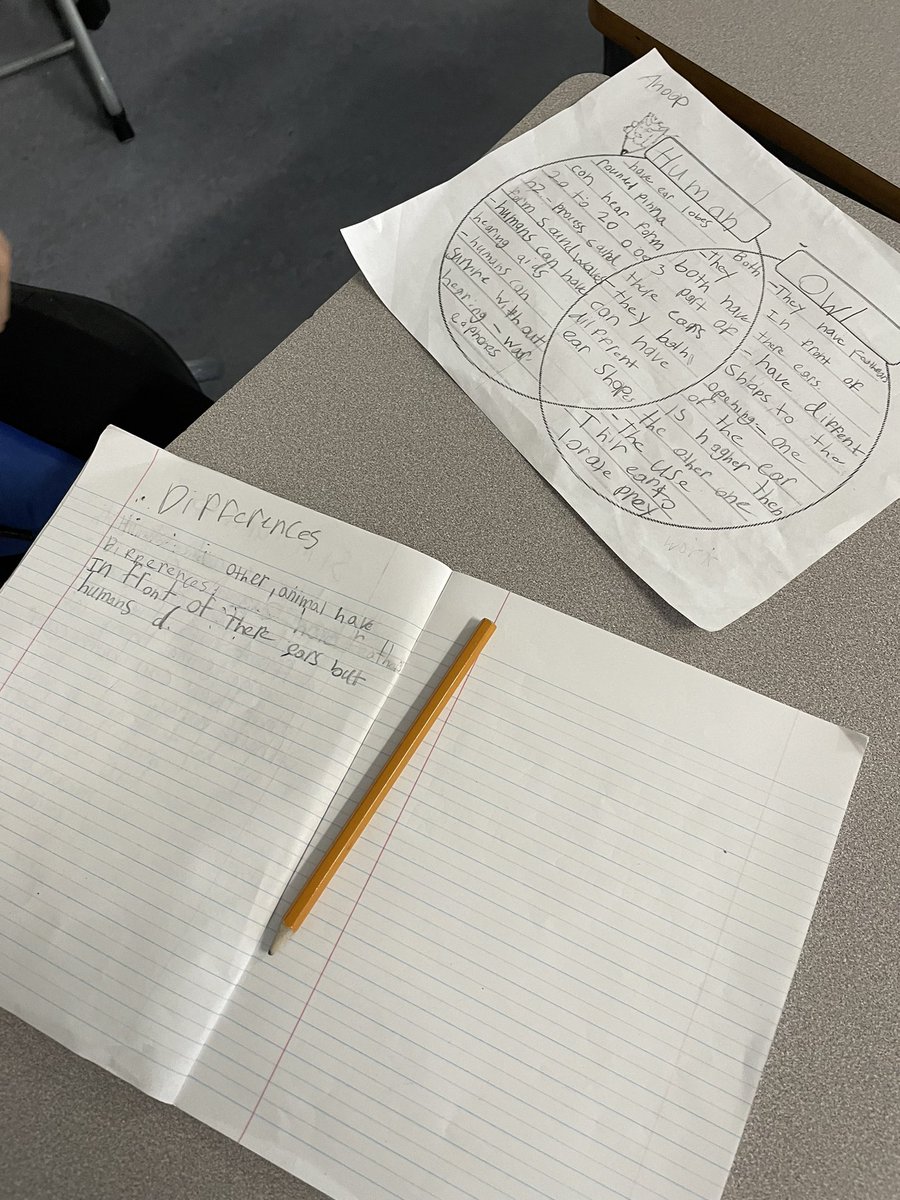 Anoop
Human
- have ear lobes
rounded pinna
can hear form
20 to 20 000
hz - process sound
form soundwaves
- humans can have
hearing aids
- humans can
survive without
hearing - war
Both
- They both have
3 part of
there ears
- they both
can have
different
ear shapes
OWL
- They have Feathers
In front of
there ears
- have different
Shaps to the
opening - one
of the ear
Is higher then
the other one
- The use
Thir ear to
lorate prey
Differences
other, animal have
Differences
In front of There ears but
humans d